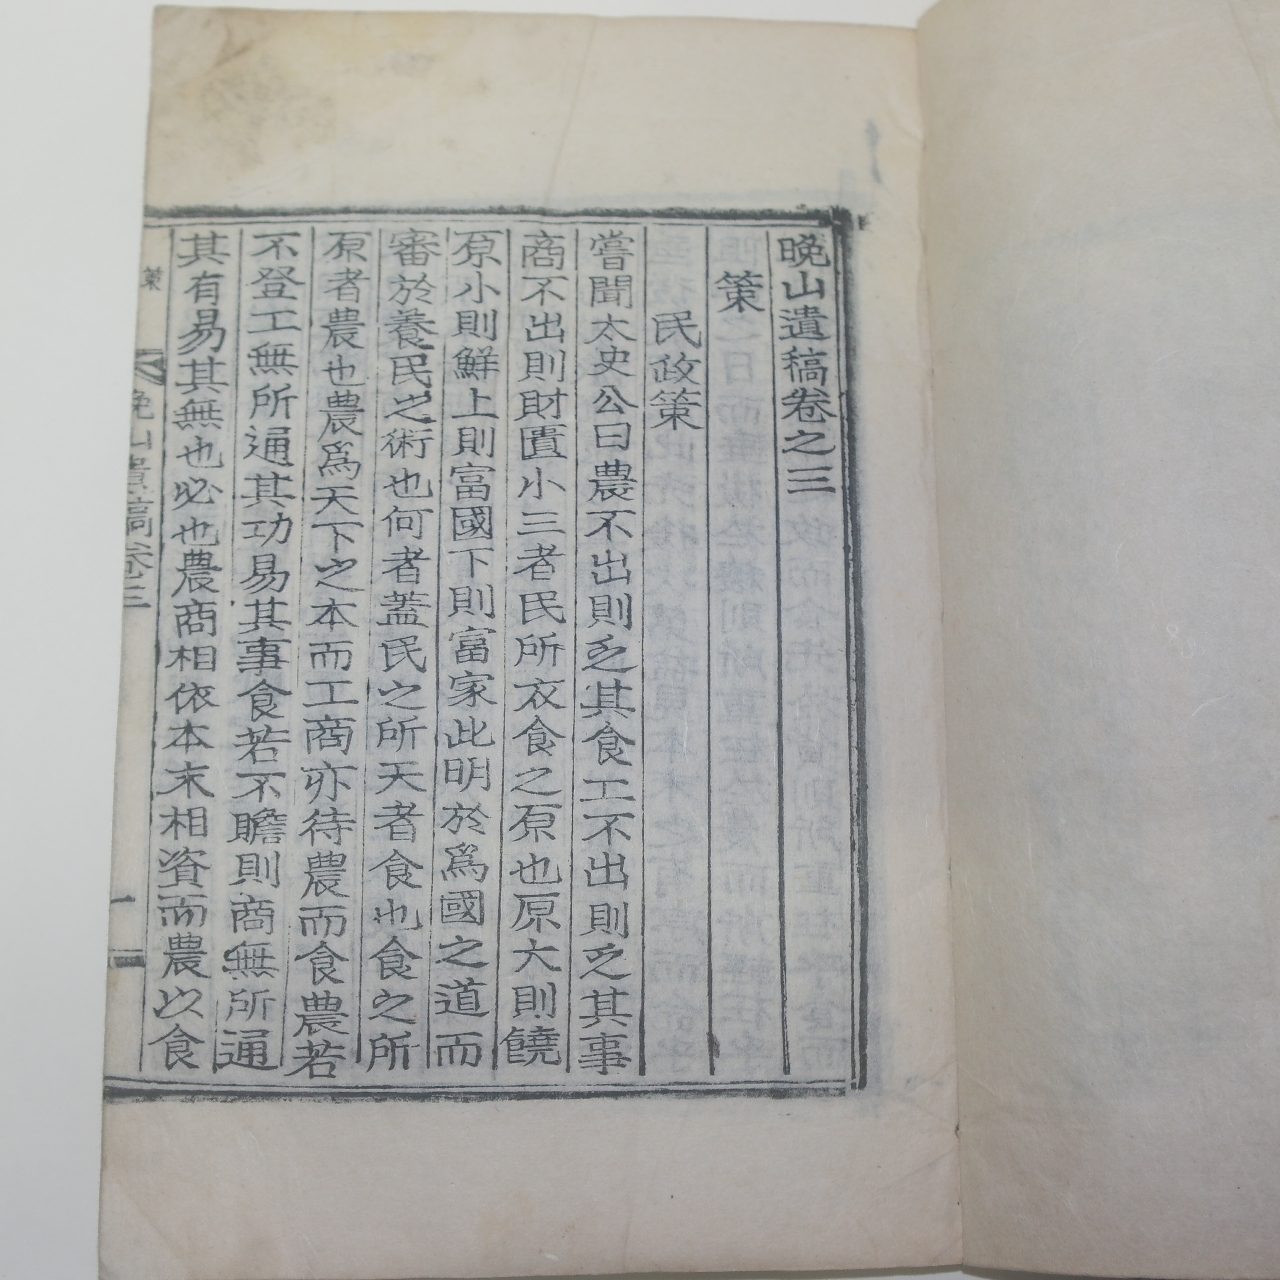 晚山遺稿卷之三
策
民政策
嘗聞太史公曰農不出則乏其食工不出則乏其事
商不出則財匱小三者民所衣食之原也原大則饒
原小則鮮上則富國下則富家此明於爲國之道而
審於養民之術也何者蓋民之所天者食也食之所
原者農也農爲天下之本而工商亦待農而食農若
不登工無所通其功易其事食若不贍則商無所通
其有易其無也必也農商相依本末相資而農以食
策
晚山遺稿卷之三
一